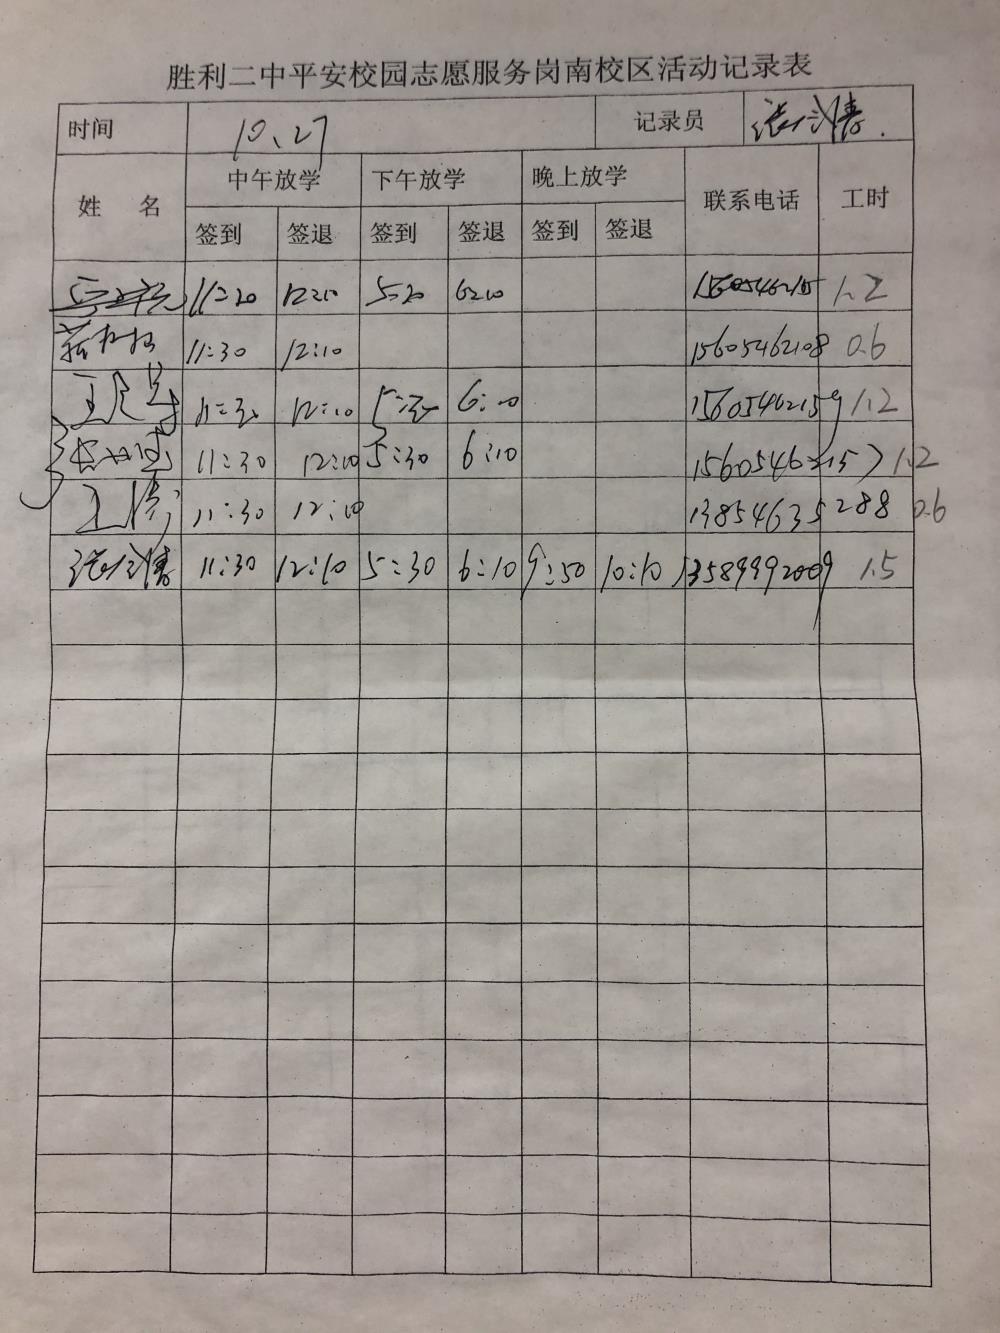 胜利二中平安校园志愿服务岗南校区活动记录表
时间 10、27 记录员
姓 名 中午放学 下午放学 晚上放学 联系电话 工时
签到 签退 签到 签退 签到 签退
11:20 12:10 5:20 6:10 1.2
11:30 12:10 15605462108 0.6
11:30 12:10 5:30 6:10 15605462159 1.2
11:30 12:10 5:30 6:10 15605462157 1.2
王倩 11:30 12:10 13854635288 0.6
11:30 12:10 5:30 6:10 9:50 10:10 13589992009 1.5